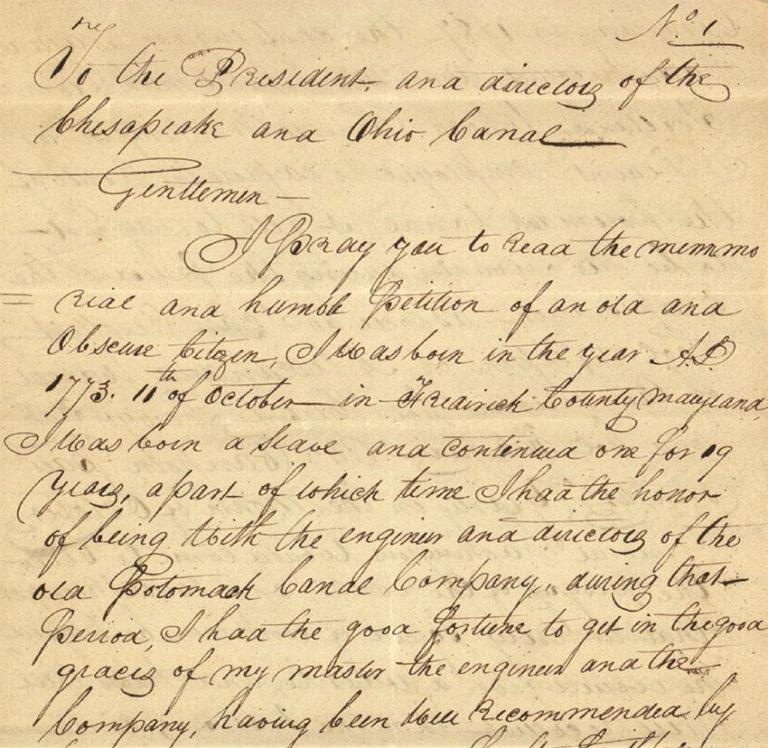 No 1
To the President, and directors of the
Chesapeake and Ohio Canal
Gentlemen —
I Pray you to read the memmo
rial and humble Petition of an old and
Obscure Citizen, I was born in the year A.D
1773. 11th of October in Fredrick County maryland,
I was born a slave and continued one for 19
years, a part of which time I had the honor
of being With the engineer and directors of the
old Potomack Canal Company, during that
Period, I had the good fortune to get in the good
graces of my master the engineer and the
Company, having been Well Recommended by